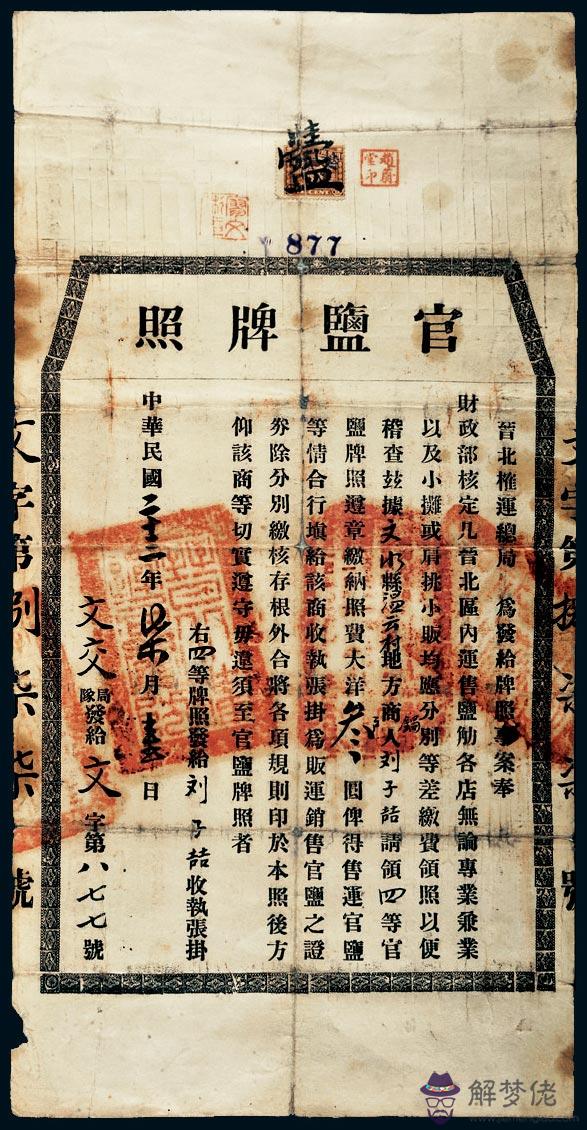 鹽
趙蔚堂印
877
官鹽牌照
晉北榷運總局 為發給牌照事案奉
財政部核定凡晉北區內運售鹽觔各店無論專業兼業
以及小攤或肩挑小販均應分別等差繳費領照以便
稽查玆據文水縣 村地方商人刘子喆請領四等官
鹽牌照遵章繳納照費大洋叁 圓俾得售運官鹽
等情合行填給該商收執張掛為販運銷售官鹽之證
券除分別繳核存根外合將各項規則印於本照後方
仰該商等切實遵守毋違須至官鹽牌照者
右四等牌照發給刘子喆收執張掛
中華民國二十二年柒月 日
文交局隊發給文字第八七七號
文字第捌柒柒號
解梦佬